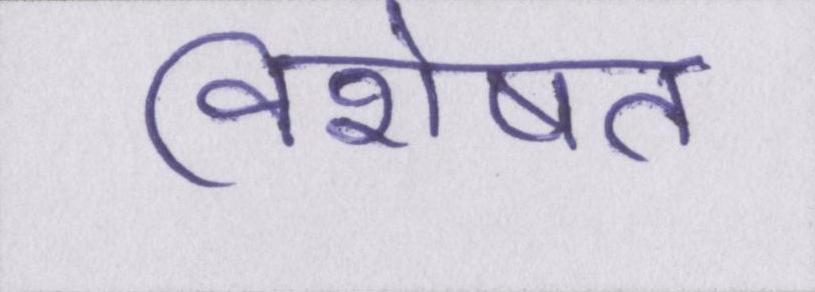 विशेषत